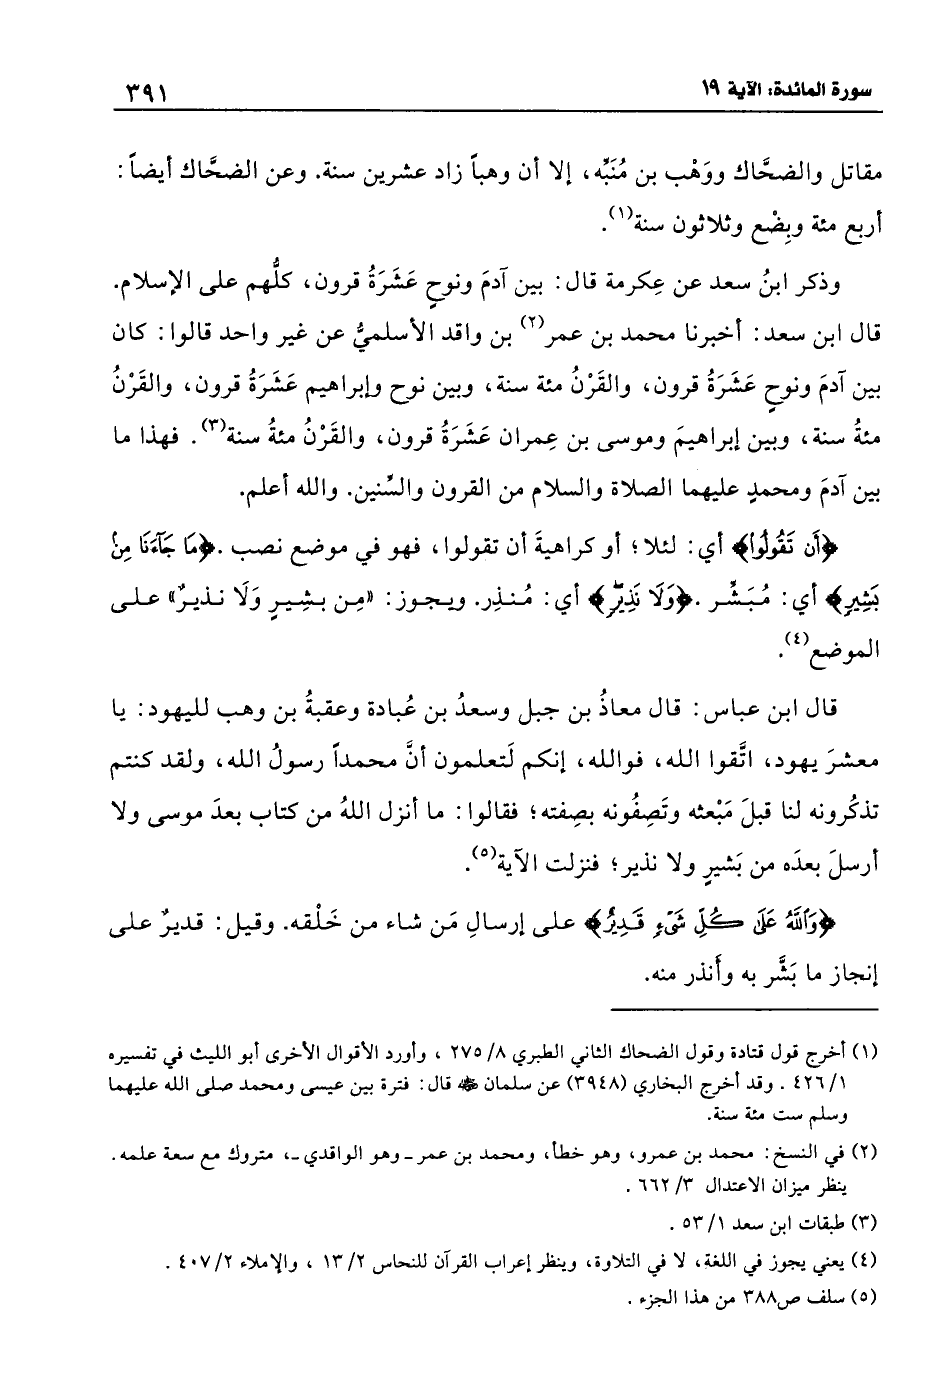 سورة المائدة: الآية ١٩
٣٩١
مقاتل والضحَّاك ووَهْب بن مُنَبِّه، إلا أن وهباً زاد عشرين سنة. وعن الضحَّاك أيضاً:
أربع مئة وبِضْع وثلاثون سنة(١).
وذكر ابنُ سعد عن عِكرمة قال: بين آدمَ ونوحٍ عَشَرَةُ قرون، كلُّهم على الإسلام.
قال ابن سعد: أخبرنا محمد بن عمر(٢) بن واقد الأسلميُّ عن غير واحد قالوا: كان
بين آدمَ ونوحٍ عَشَرَةُ قرون، والقَرْنُ مئة سنة، وبين نوح وإبراهيم عَشَرَةُ قرون، والقَرْنُ
مئةُ سنة، وبين إبراهيمَ وموسى بن عِمران عَشَرَةُ قرون، والقَرْنُ مئةُ سنة(٣). فهذا ما
بين آدمَ ومحمدٍ عليهما الصلاة والسلام من القرون والسِّنين. والله أعلم.
﴿أَن تَقُولُوا﴾ أي: لئلا؛ أو كراهيةَ أن تقولوا، فهو في موضع نصب. ﴿مَا جَآءَنَا مِنۢ
بَشِيرٍ﴾ أي: مُبَشِّر. ﴿وَلَا نَذِيرٍ﴾ أي: مُنذِر. ويجوز: «مِن بشِيرٍ وَلَا نذيرٌ» على
الموضع(٤).
قال ابن عباس: قال معاذُ بن جبل وسعدُ بن عُبادة وعقبةُ بن وهب لليهود: يا
معشرَ يهود، اتَّقوا الله، فوالله، إنكم لَتعلمون أنَّ محمداً رسولُ الله، ولقد كنتم
تذكُرونه لنا قبلَ مَبْعثه وتَصِفُونه بصِفته؛ فقالوا: ما أنزل اللهُ من كتاب بعدَ موسى ولا
أرسلَ بعدَه من بَشيرٍ ولا نذير؛ فنزلت الآية(٥).
﴿وَاللَّهُ عَلَى كُلِّ شَىْءٍ قَدِيرٌ﴾ على إرسالِ مَن شاء من خَلْقه. وقيل: قديرٌ على
إنجاز ما بَشَّر به وأَنذر منه.
(١) أخرج قول قتادة وقول الضحاك الثاني الطبري ٨/ ٢٧٥ ، وأورد الأقوال الأخرى أبو الليث في تفسيره
١/ ٤٢٦ . وقد أخرج البخاري (٣٩٤٨) عن سلمان ﷺ قال: فترة بين عيسى ومحمد صلى الله عليهما
وسلم ست مئة سنة.
(٢) في النسخ: محمد بن عمرو، وهو خطأ، ومحمد بن عمر ـ وهو الواقدي ـ، متروك مع سعة علمه.
ينظر ميزان الاعتدال ٣/ ٦٦٢ .
(٣) طبقات ابن سعد ١/ ٥٣ .
(٤) يعني يجوز في اللغة، لا في التلاوة، وينظر إعراب القرآن للنحاس ٢/ ١٣ ، والإملاء ٢/ ٤٠٧ .
(٥) سلف ص٣٨٨ من هذا الجزء .